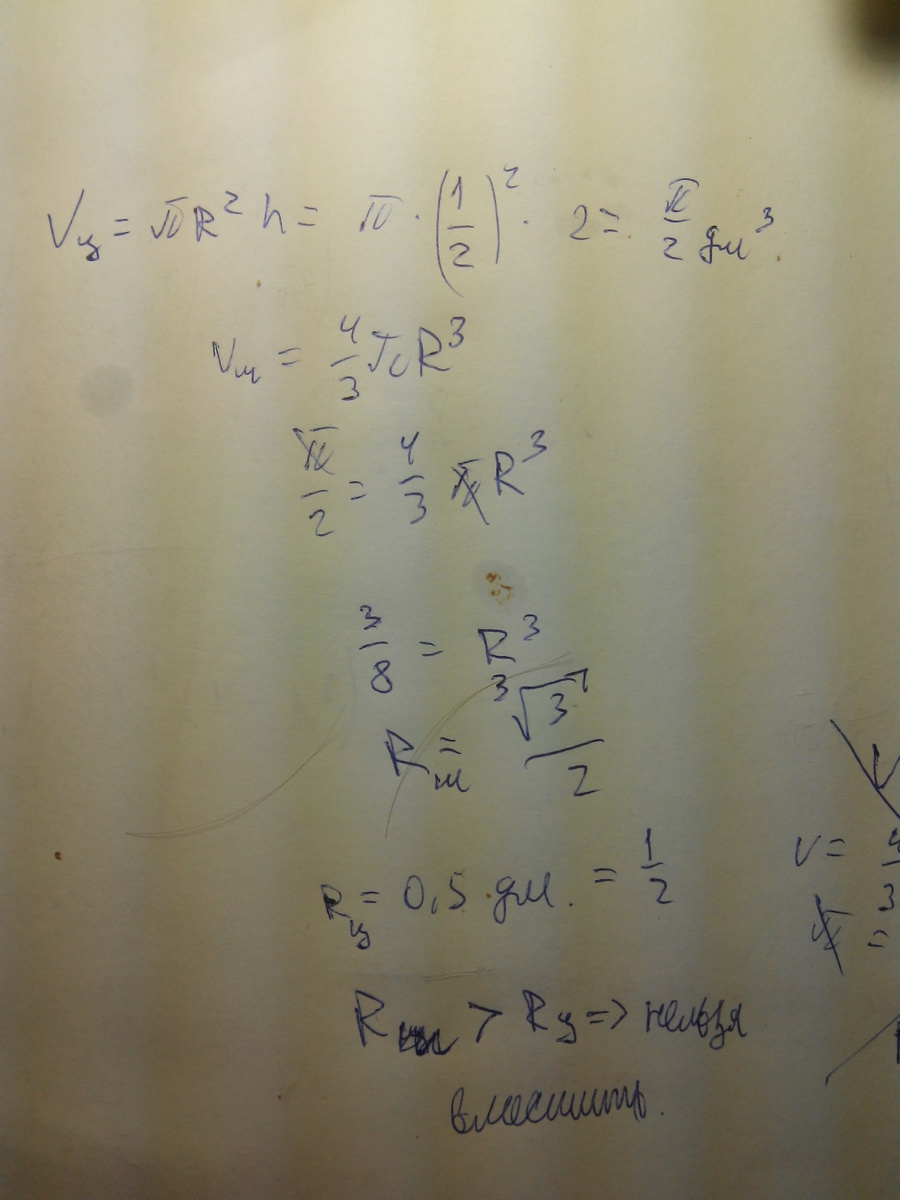 Vц = πR² h = π · (1/2)² · 2 = π/2 дм³.
Vш = 4/3 πR³
π/2 = 4/3 πR³
3/8 = R³
Rш = ∛3/2
Rц = 0,5 дм. = 1/2
V = 4/3
π =
Rш > Rц => нельзя
вместить.